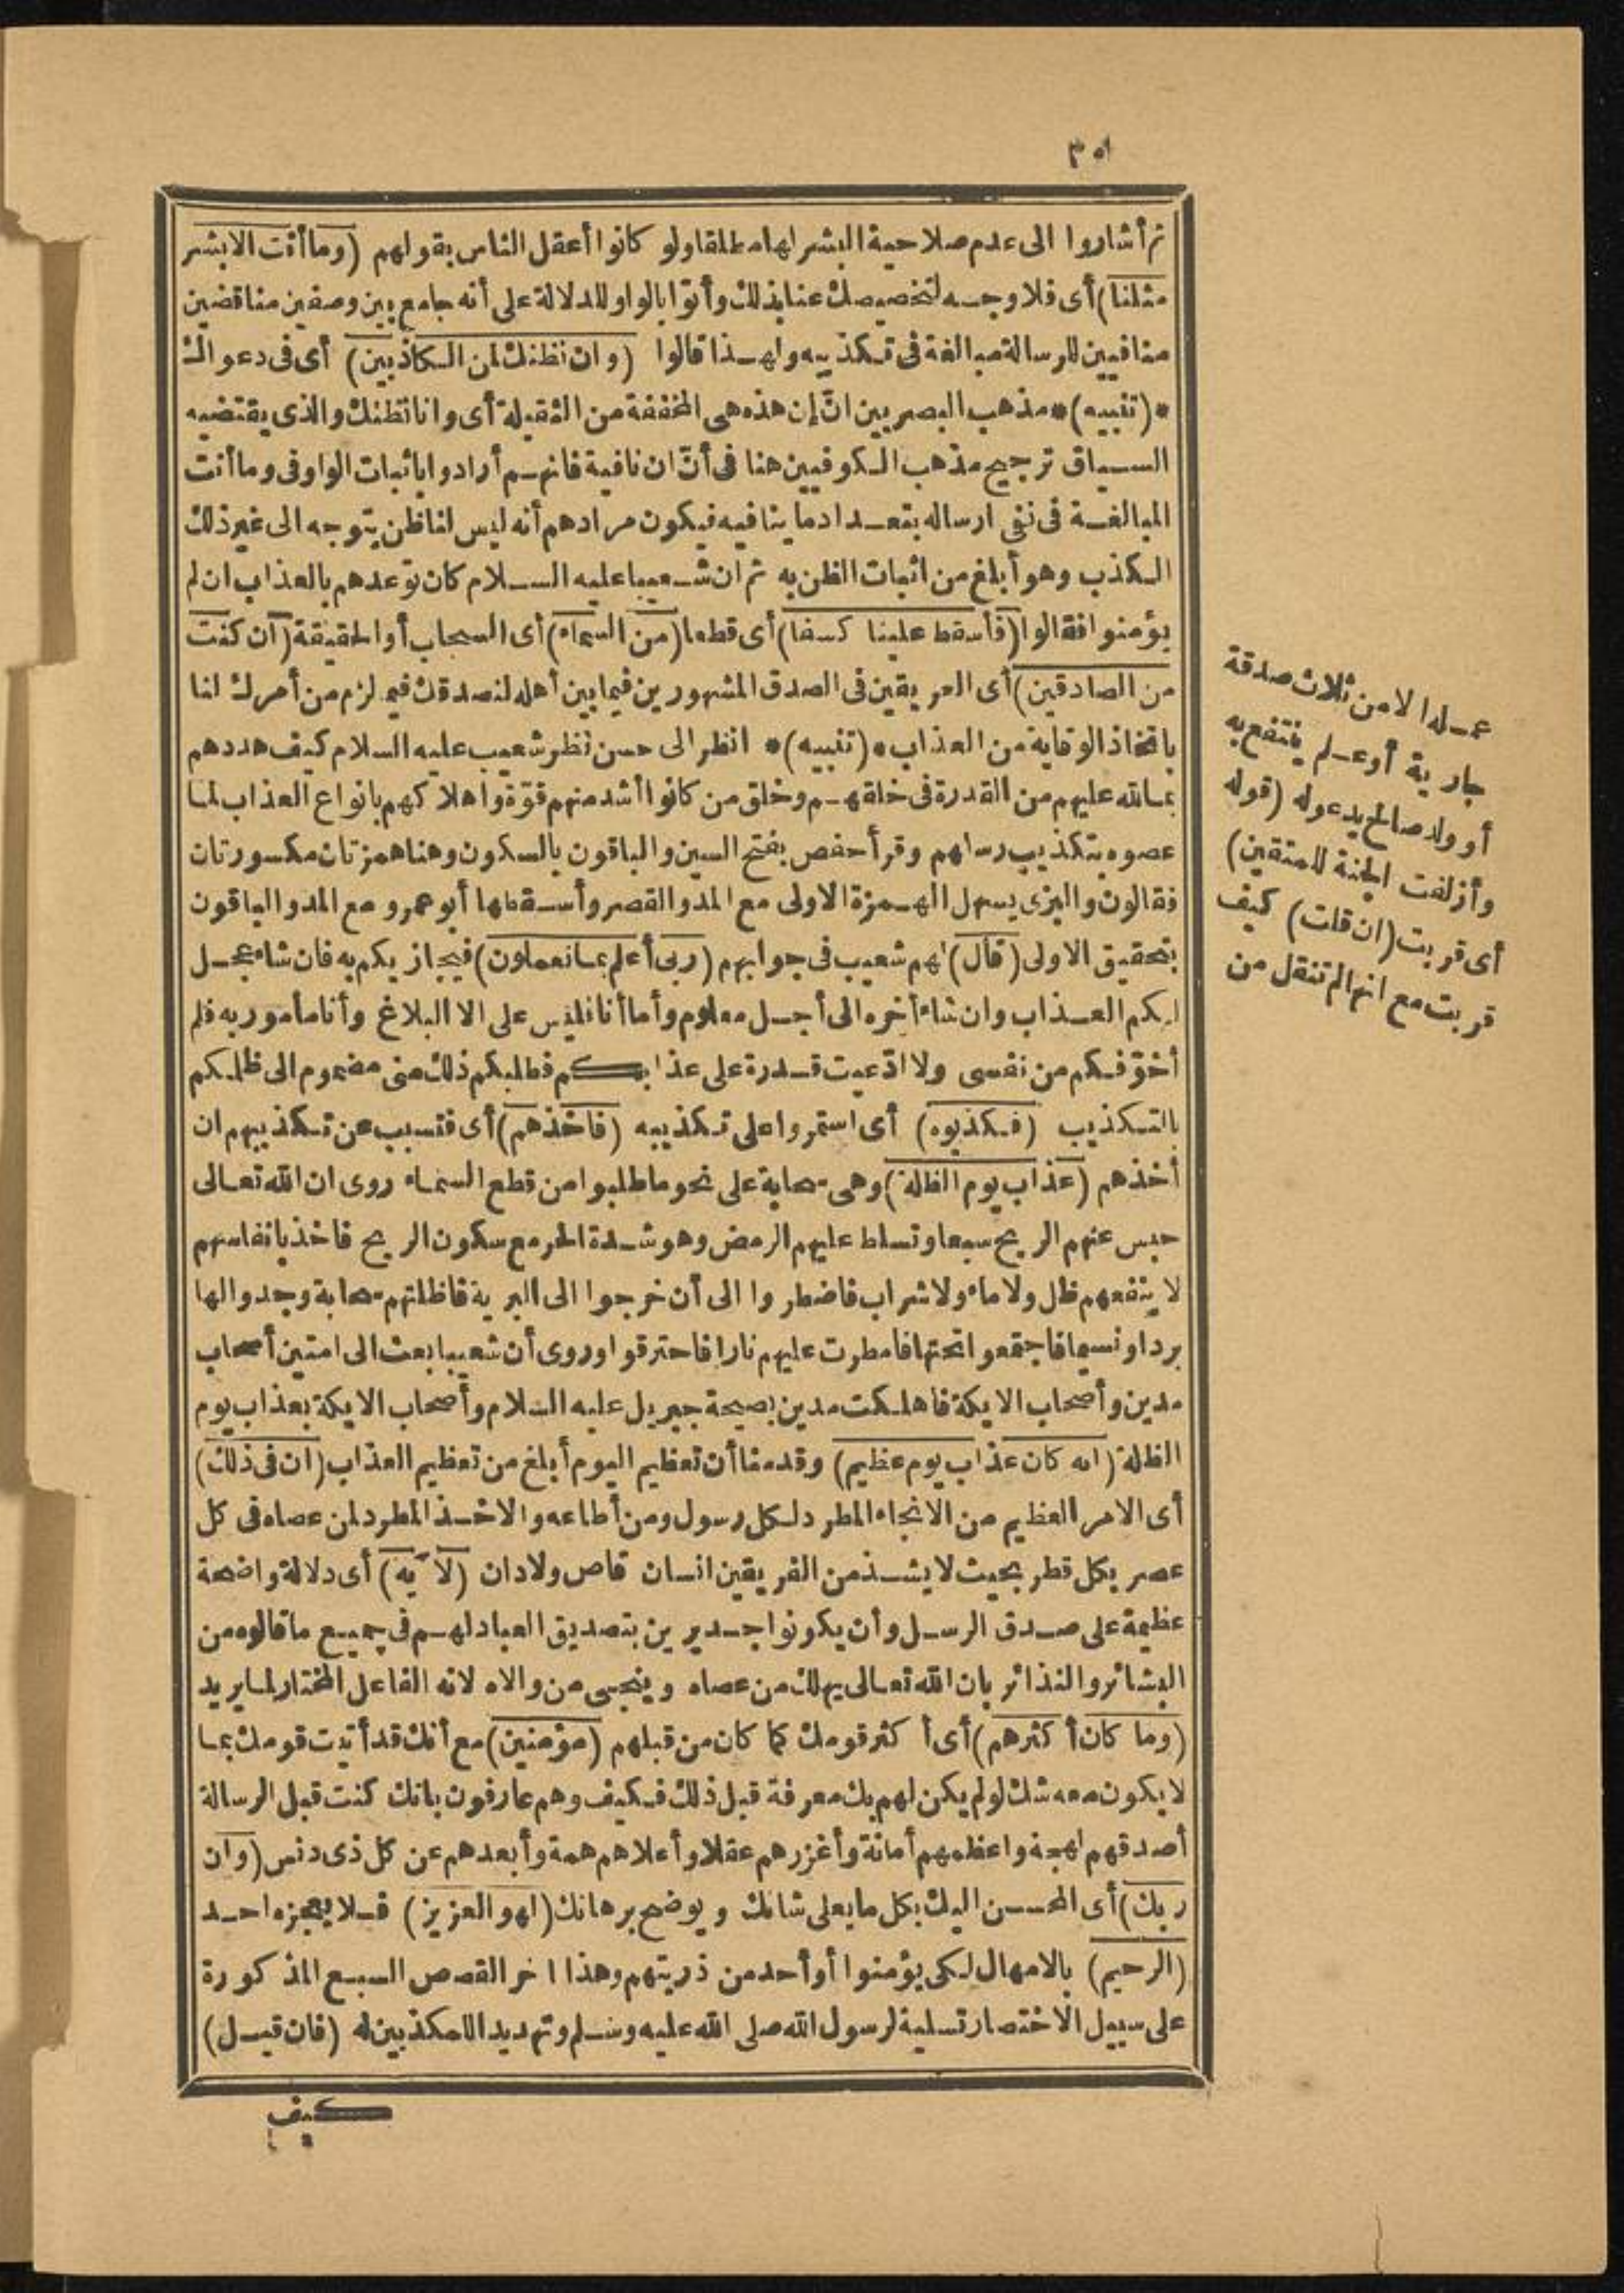 ٣٥١
ثم أشاروا الى عدم صلاحية البشر لها مطلقا ولو كانوا أعقل الناس بقولهم (وما أنت الا بشر
مثلنا) أى فلا وجه لتخصيصك عنا بذلك وأتوا بالواو للدلالة على أنه جامع بين وصفين مناقضين
منافيين للرسالة مبالغة فى تكذيبه ولهذا قالوا (وان نظنك لمن الكاذبين) أى فى دعواك
*(تنبيه)* مذهب البصريين انّ إن هذه هى المخففة من الثقيلة أى وانا نظنك والذى يقتضيه
السياق ترجيح مذهب الكوفيين هنا فى أنّ ان نافية فانهم أرادوا باثبات الواو فى وما أنت
المبالغة فى نفى ارساله بتعداد ما ينافيه فيكون مرادهم أنه ليس لنا ظن يتوجه الى غير ذلك
الكذب وهو أبلغ من اثبات الظن به ثم ان شعيبا عليه السلام كان توعدهم بالعذاب ان لم
يؤمنوا فقالوا (فأسقط علينا كسفا) أى قطعا (من السماء) أى السحاب أو الحقيقة (ان كنت
من الصادقين) أى العريقين فى الصدق المشهورين فيما بين أهله لنصدقك فيما لزم من أمرك لنا
باتخاذ الوقاية من العذاب *(تنبيه)* انظر الى حسن نظر شعيب عليه السلام كيف هددهم
بما لله عليهم من القدرة فى خلقهم وخلق من كانوا أشد منهم قوّة واهلاكهم بانواع العذاب لما
عصوه بتكذيب رسلهم وقرأ حفص بفتح السين والباقون بالسكون وهنا همزتان مكسورتان
فقالون والبزى يسهل الهمزة الاولى مع المد والقصر وأسقطها أبو عمرو مع المد والباقون
بتحقيق الاولى (قال) لهم شعيب فى جوابهم (ربى أعلم بما تعملون) فيجازيكم به فان شاء عجل
لكم العذاب وان شاء أخره الى أجل معلوم وأما أنا فليس على الا البلاغ وأنا مأمور به فلم
أخوّفكم من نفسى ولا ادّعيت قدرة على عذابكم فطلبكم ذلك منى مضموم الى ظلمكم
بالتكذيب (فكذبوه) أى استمروا على تكذيبه (فاخذهم) أى فتسبب عن تكذيبهم ان
أخذهم (عذاب يوم الظلة) وهى سحابة على نحو ما طلبوا من قطع السماء روى ان الله تعالى
حبس عنهم الريح سبعا وتسلط عليهم الرمض وهو شدة الحر مع سكون الريح فاخذ بانفاسهم
لا ينفعهم ظل ولا ماء ولا شراب فاضطروا الى أن خرجوا الى البرية فاظلتهم سحابة وجدوا لها
بردا ونسيما فاجتمعوا تحتها فامطرت عليهم نارا فاحترقوا وروى أن شعيبا بعث الى امتين أصحاب
مدين وأصحاب الايكة فاهلكت مدين بصيحة جبريل عليه السلام وأصحاب الايكة بعذاب يوم
الظلة (انه كان عذاب يوم عظيم) وقدمنا أن تعظيم اليوم أبلغ من تعظيم العذاب (ان فى ذلك)
أى الامر العظيم من الانجاء المطرد لكل رسول ومن أطاعه والاخذ المطرد لمن عصاه فى كل
عصر بكل قطر بحيث لا يشذ من الفريقين انسان قاص ولا دان (لآية) أى دلالة واضحة
عظيمة على صدق الرسل وأن يكونوا جديرين بتصديق العباد لهم فى جميع ما قالوه من
البشائر والنذائر بان الله تعالى يهلك من عصاه وينجى من والاه لانه الفاعل المختار لما يريد
(وما كان أكثرهم) أى أكثر قومك كما كان من قبلهم (مؤمنين) مع أنك قد أتيت قومك بما
لا يكون معه شك لو لم يكن لهم بك معرفة قبل ذلك فكيف وهم عارفون بانك كنت قبل الرسالة
أصدقهم لهجة واعظمهم أمانة وأغزرهم عقلا وأعلاهم همة وأبعدهم عن كل ذى دنس (وان
ربك) أى المحسن اليك بكل ما يعلى شانك ويوضح برهانك (لهو العزيز) فلا يعجزه احد
(الرحيم) بالامهال لكى يؤمنوا أو أحد من ذريتهم وهذا اخر القصص السبع المذكورة
على سبيل الاختصار تسلية لرسول الله صلى الله عليه وسلم وتهديدا للمكذبين له (فان قيل)
كيف
عمله الا من ثلاث صدقة
جارية أو علم ينتفع به
أو ولد صالح يدعو له (قوله
وأزلفت الجنة للمتقين)
أى قربت (ان قلت) كيف
قربت مع انها لم تنقل من